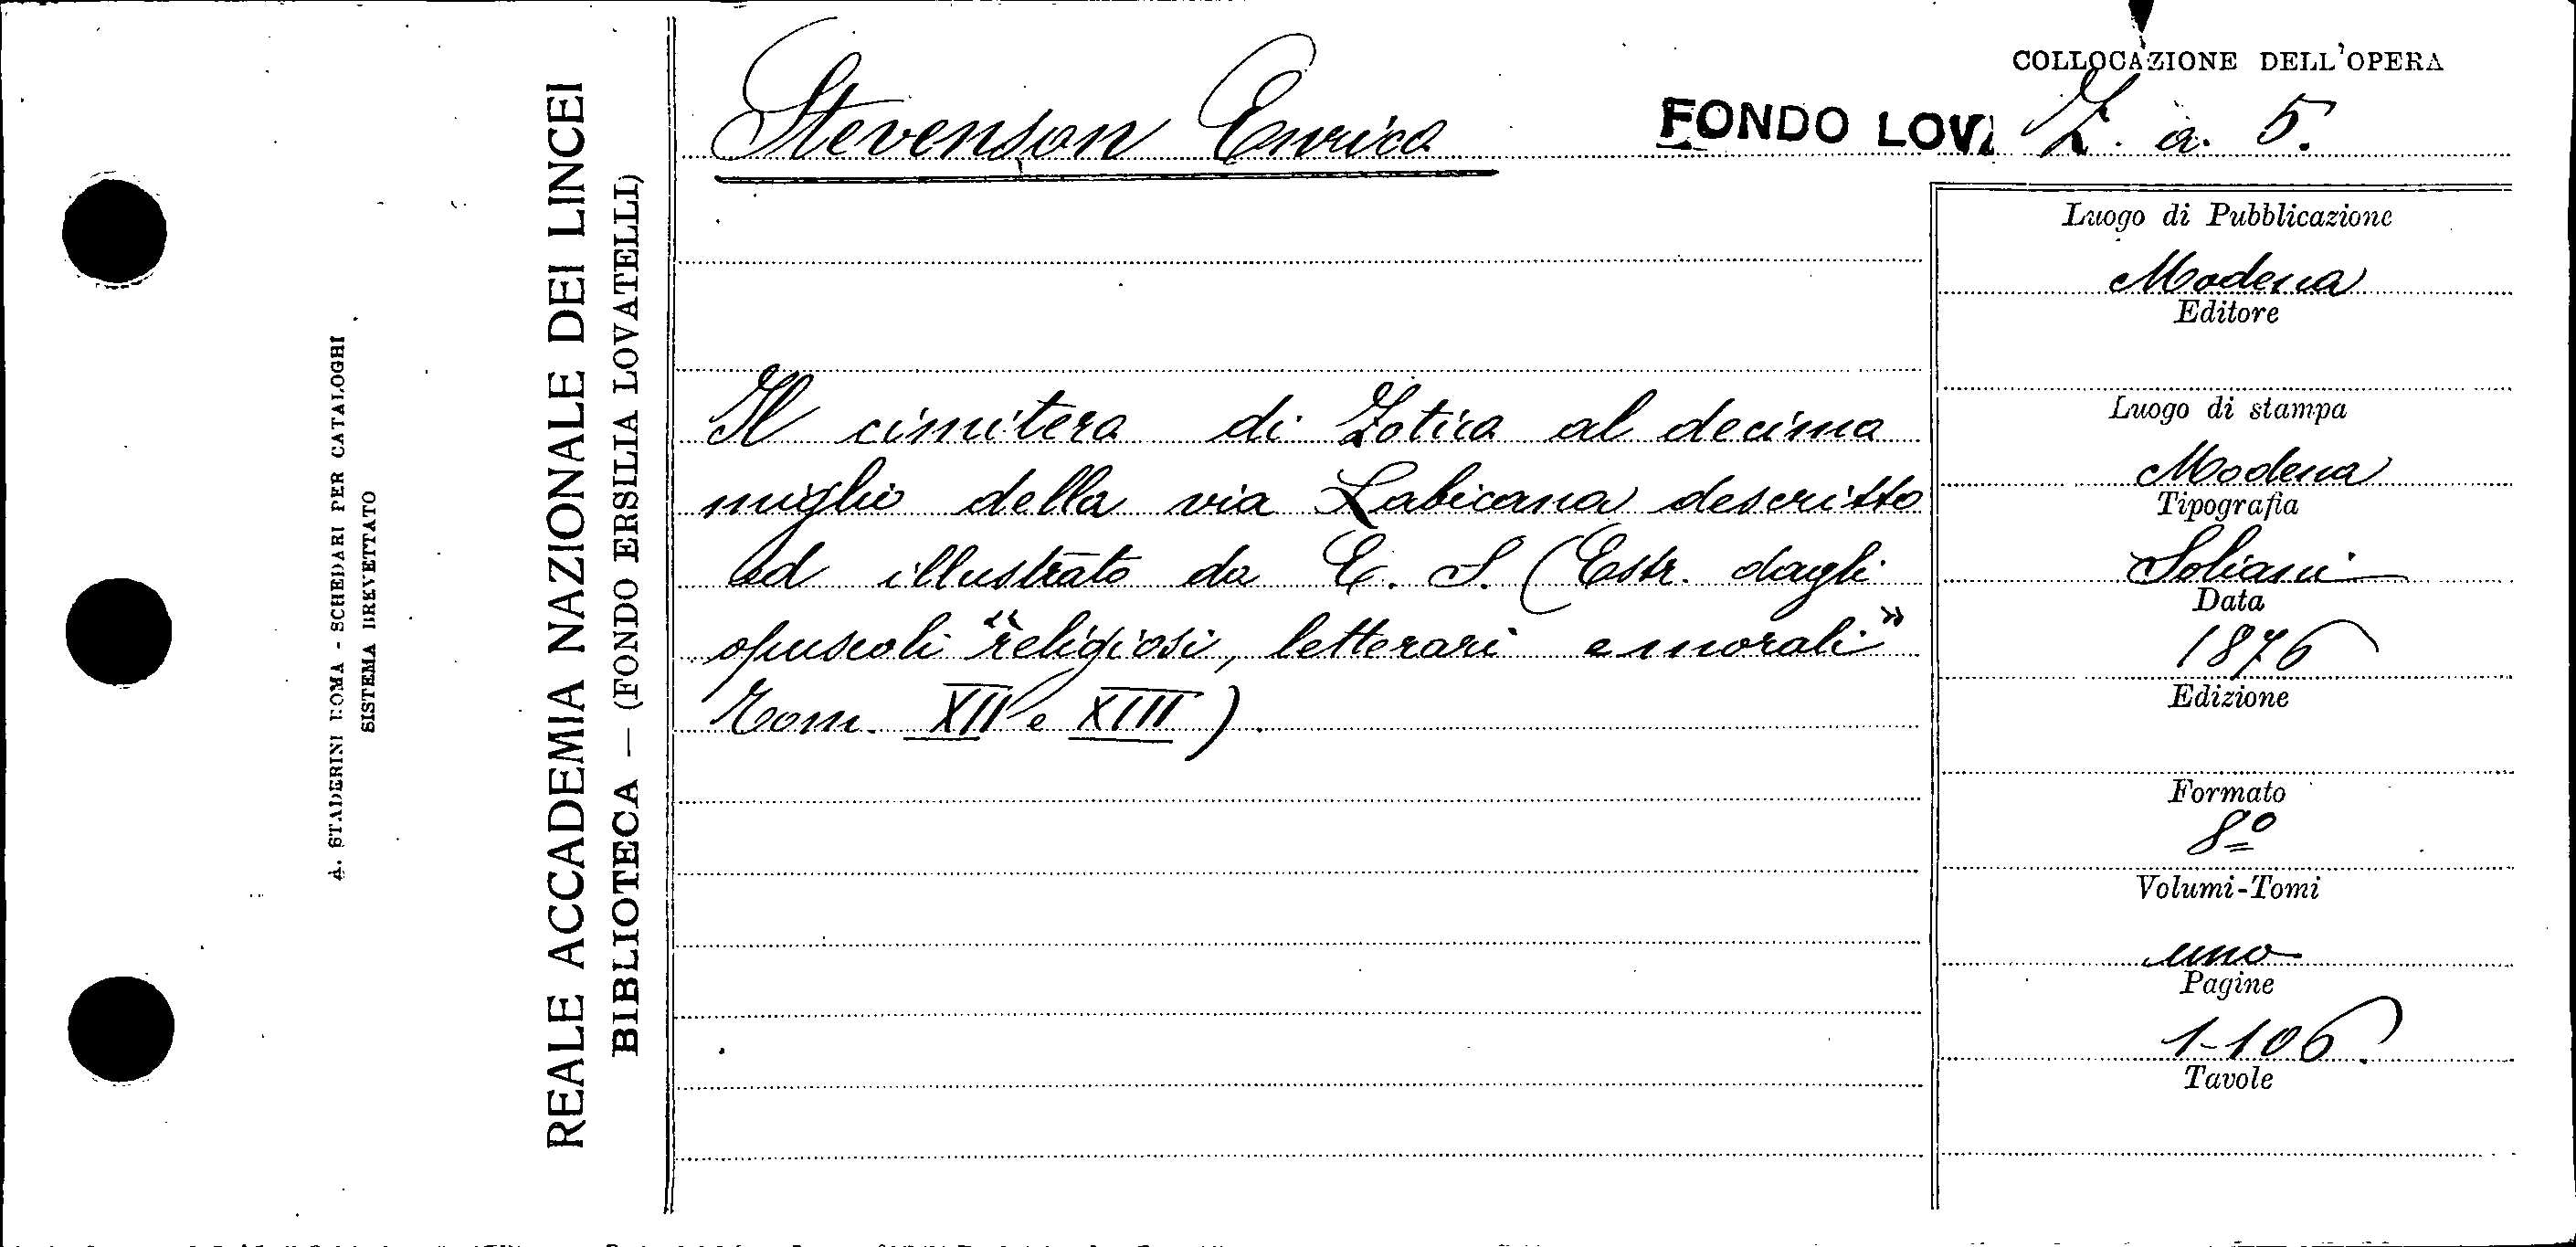 A. STADERINI ROMA - SCHEDARI PER CATALOGHI
SISTEMA BREVETTATO
REALE ACCADEMIA NAZIONALE DEI LINCEI
BIBLIOTECA — (FONDO ERSILIA LOVATELLI)
Stevenson Enrico
COLLOCAZIONE DELL'OPERA
FONDO LOV. Z. a. 5.
Il cimitero di Zotico al decimo
miglio della via Labicana descritto
ed illustrato da E. S. (Estr. dagli
opuscoli "religiosi, letterari e morali"
Tom. XII e XIII).
Luogo di Pubblicazione
Modena
Editore
Luogo di stampa
Modena
Tipografia
Soliani
Data
1876
Edizione
Formato
8º
Volumi-Tomi
uno
Pagine
1-106
Tavole